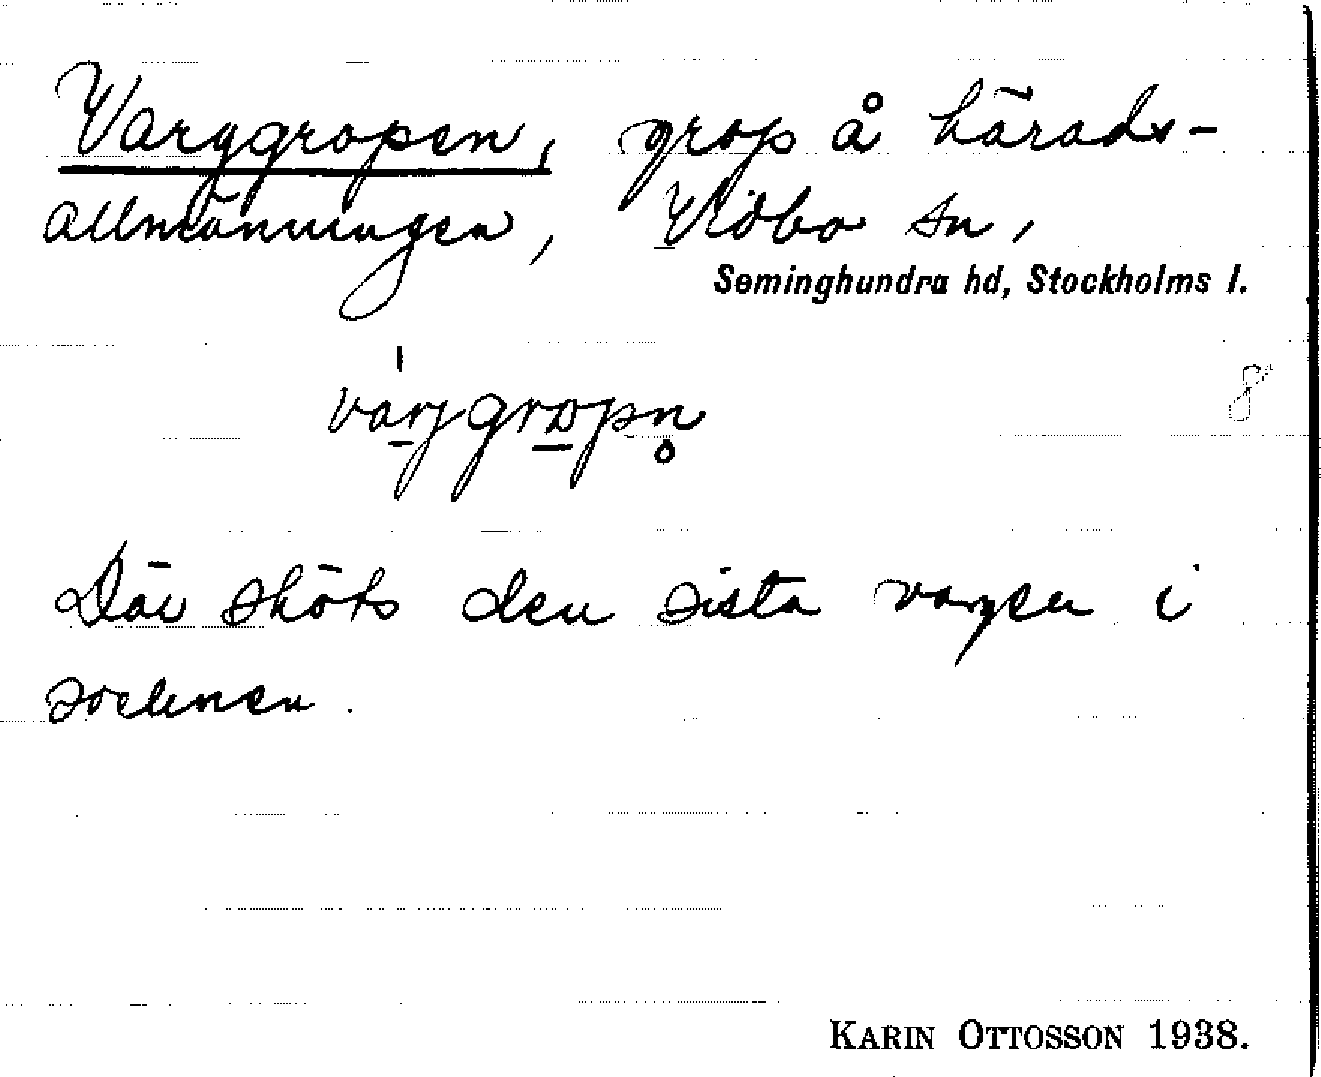 Varggropen, grop å härads-
allmänningen, Vidbo sn,
Seminghundra hd, Stockholms l.
8
Där sköts den sista vargen i
socknen.
KARIN OTTOSSON 1938.